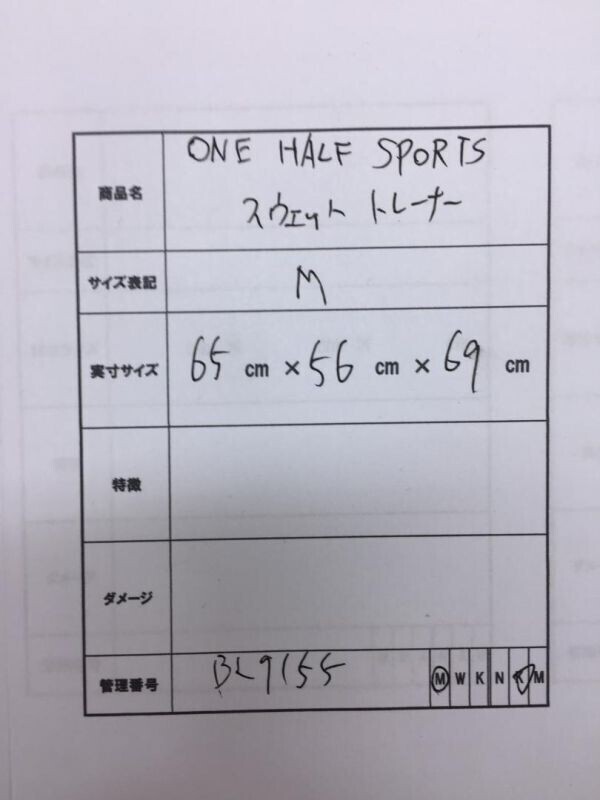 商品名 ONE HALF SPORTS
スウェット トレーナー
サイズ表記 M
実寸サイズ 65 cm × 56 cm × 69 cm
特徴
ダメージ
管理番号 BL9155 M W K N K M